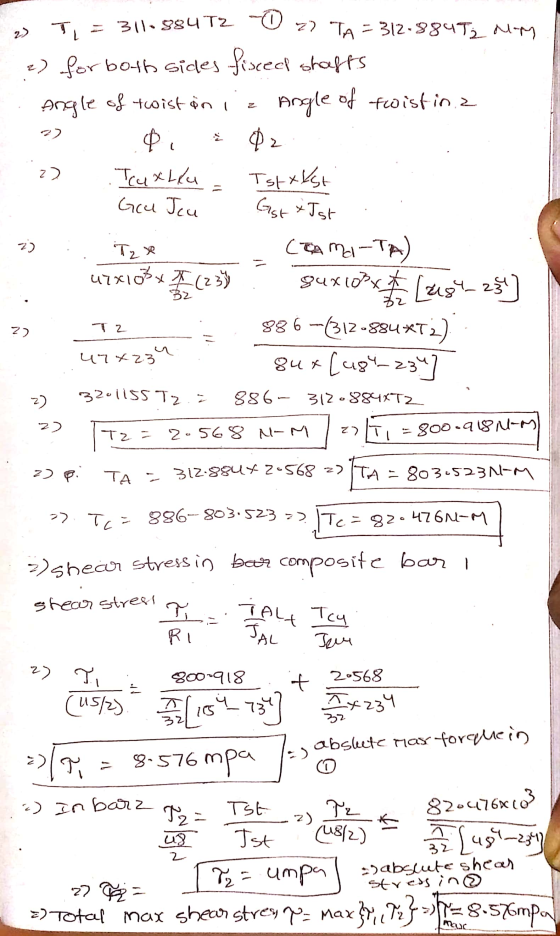 =) T1 = 311.884T2 —① => TA = 312.884T2 N-M
=) for both sides fixed shafts
Angle of twist in 1 = Angle of twist in 2
=> φ1 = φ2
=> Tcu×Lcu / Gcu Jcu = Tst×Lst / Gst×Jst
=> T2 / 47×10³×π/32 (23⁴) = (TA md-TA) / 84×10³×π/32 [48⁴-23⁴]
=> T2 / 47×23⁴ = 886-(312.884×T2) / 84×[48⁴-23⁴]
=) 32.1155T2 = 886- 312.884×T2
=> T2 = 2.568 N-M => T1 = 800.918 N-M
=> TA = 312.884×2.568 => TA = 803.523N-M
=> TC = 886-803.523 => TC = 82.476N-M
=) shear stress in composite bar 1
shear stress τ1 / R1 = TAL / JAL + Tcu / Jcu
=) τ1 / (115/2) = 800.918 / π/32 [115⁴-73⁴] + 2.568 / π/32×23⁴
=) τ1 = 8.576 mpa => abslute max torque in ①
=) In bar 2 τ2 / 48/2 = Tst / Jst => τ2 / (48/2) = 82.476×10³ / π/32 [48⁴-23⁴]
=> τ2 = τ2 = 4mpa => abslute shear stress in ②
=) Total max shear stress τ= Max{τ1,τ2} => τmax = 8.576mpa